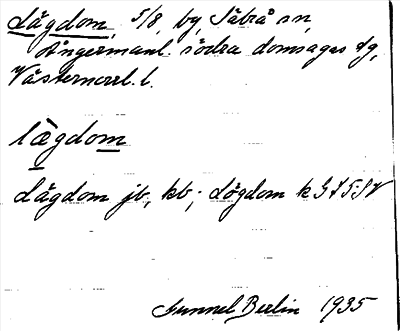 Lägdom, 5/8, by, Säbrå sn,
Ångermanl. södra domsagas tg,
Västernorrl. l.
lägdom
Lägdom jb, kb; Lögdom k
Gunnel Berlin 1935